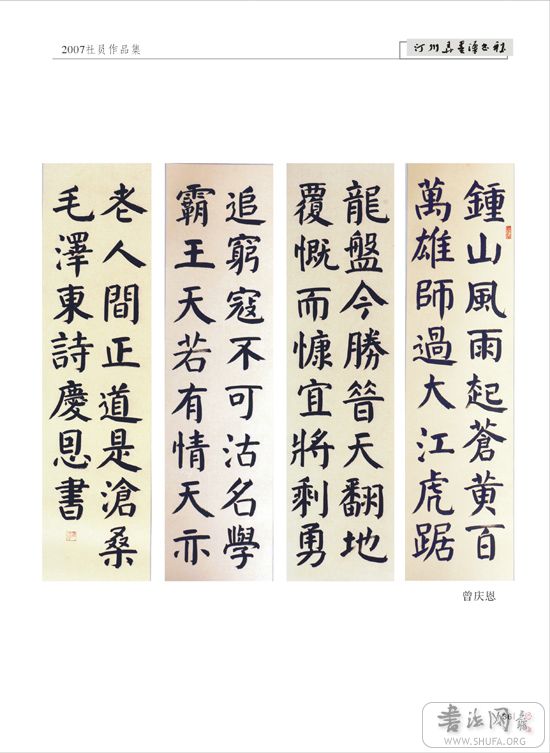 2007社员作品集
鍾山風雨起蒼黄百
萬雄師過大江虎踞
龍盤今勝昔天翻地
覆慨而慷宜將剩勇
追窮寇不可沽名學
霸王天若有情天亦
老人間正道是滄桑
毛澤東詩慶恩書
曾庆恩
書法网
WWW.SHUFA.ORG